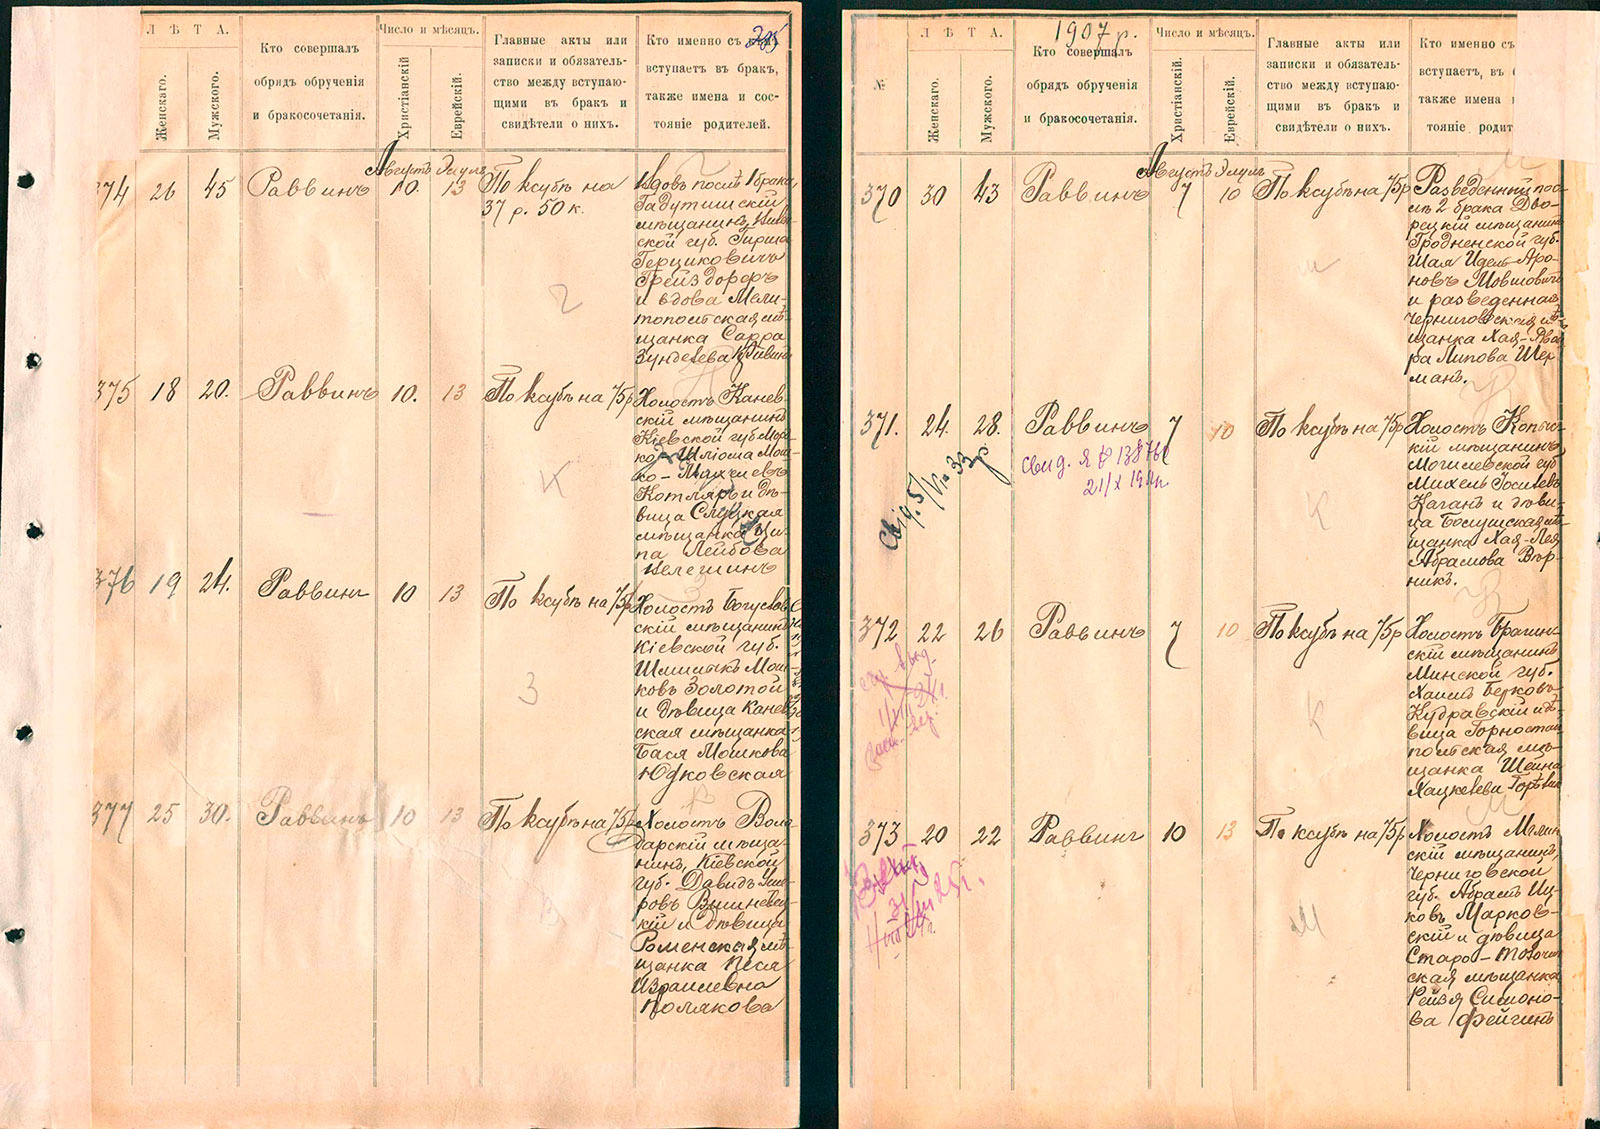 Л Ѣ Т А.
Женскаго.
Мужского.
Кто совершалъ
обрядъ обрученія
и бракосочетанія.
Число и мѣсяцъ.
Христіанскій
Еврейскій.
Главные акты или
записки и обязатель-
ство между вступаю-
щими въ бракъ и
свидѣтели о нихъ.
Кто именно съ
вступаетъ въ бракъ,
также имена и сос-
тояніе родителей.
Августъ Элулъ
374 26 45 Раввинъ 10. 13 По ксубѣ на
37 р. 50 к.
Вдовъ послѣ 1 брака,
Гадутишскій
мѣщанинъ,
ской губ. Гирша
Герциковичъ
Грейздорфъ
и вдова Мели-
топольская мѣ-
щанка Сарра
Зунделева
375 18 20. Раввинъ 10. 13 По ксубѣ на 75р
Холостъ Канев-
скій мѣщанинъ
Кіевской губ.
Шліома Мош-
ко-
Котляръ и дѣ-
вица Слуцкая
мѣщанка Ци-
па Лейбова
Целешинъ
376 19 24. Раввинъ 10 13 По ксубѣ на 75р
Холостъ Богуслав
скій мѣщанинъ
Кіевской губ.
Шлиомъ Мош-
ковъ Золотой
и дѣвица Канев
ская мѣщанка
Бася Мошкова
Юдковская
377 25 30. Раввинъ 10 13 По ксубѣ на 75р
Холостъ Воло
дарскій мѣща-
нинъ, Кіевской
губ. Давидъ
ровъ Вишнев-
кій и дѣвица
Роменская мѣ-
щанка Песя
Израилевна
Полякова
1907 г.
№
Л Ѣ Т А.
Женскаго.
Мужского.
Кто совершалъ
обрядъ обрученія
и бракосочетанія.
Число и мѣсяцъ.
Христіанскій.
Еврейскій.
Главные акты или
записки и обязатель-
ство между вступаю-
щими въ бракъ и
свидѣтели о нихъ.
Кто именно съ
вступаетъ, въ
также имена
тояніе родит
Августъ Элулъ
370 30 43 Раввинъ 7 10 По ксубѣ на 75р
Разведенный пос-
лѣ 2 брака Дво-
рецкій мѣщанинъ
Гродненской губ.
Шая Идель-Аро-
новъ Мовшовичъ
и разведенная
Черниговская мѣ-
щанка Хая-Два
ра Липова Шер
манъ.
371. 24. 28. Раввинъ 7 10 По ксубѣ на 75р
Холостъ Копыс-
кій мѣщанинъ
Могилевской губ
Михель Іосилевъ
Каганъ и дѣви-
ца Богушская мѣ-
щанка Хая-Лея
Абрамова Вѣр-
никъ.
372 22 26 Раввинъ 7 10 По ксубѣ на 75р
Холостъ Брагин-
скій мѣщанинъ
Минской губ.
Хаимъ Берковъ
Кудравскій и дѣ-
вица Горностай
польская мѣ-
щанка Шейна
Хацкелева
373 20 22 Раввинъ 10 13 По ксубѣ на 75р
Холостъ Мглин
скій мѣщанинъ,
Черниговской
губ. Абрамъ Иц-
ковъ Марков-
скій и дѣвица
Старо-
ская мѣщанка
Рейзя Симоно-
ва Фейгинъ